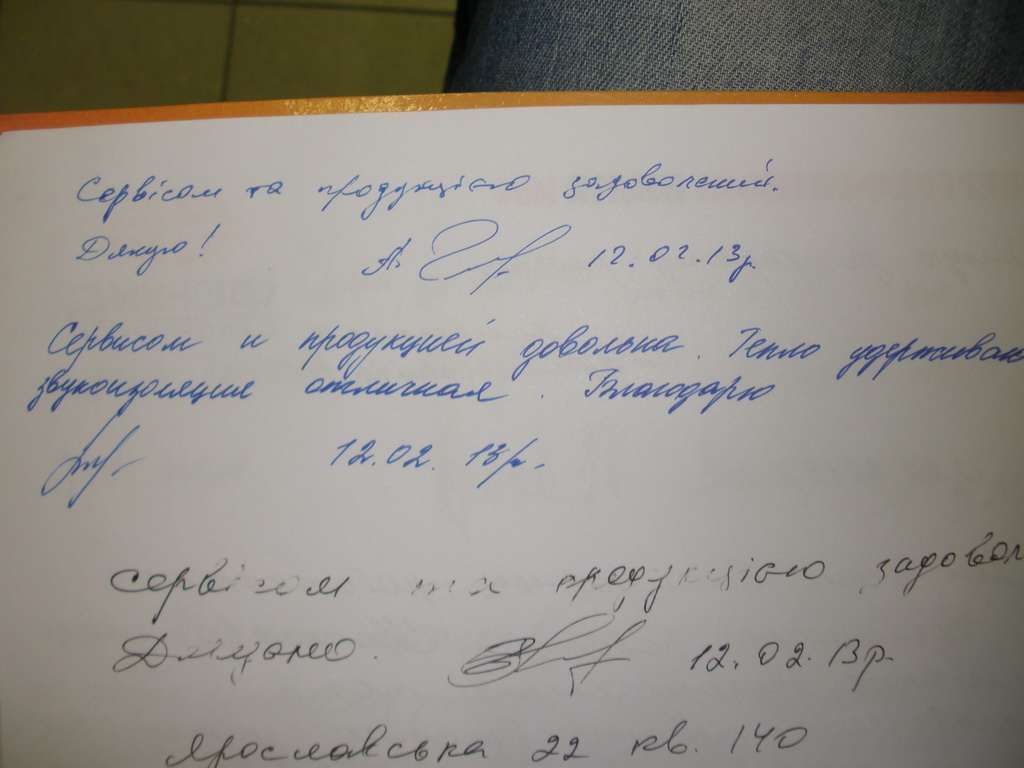 Сервісом та продукцією задоволений.
Дякую! А. 12.02.13р.
Сервисом и продукцией довольна. Тепло удерживан
звукоизоляция отличная. Благодарю
12.02. 13р.
Сервісом та продукцією задовол
Дякую. 12.02.13р.
Ярославська 22 кв. 140